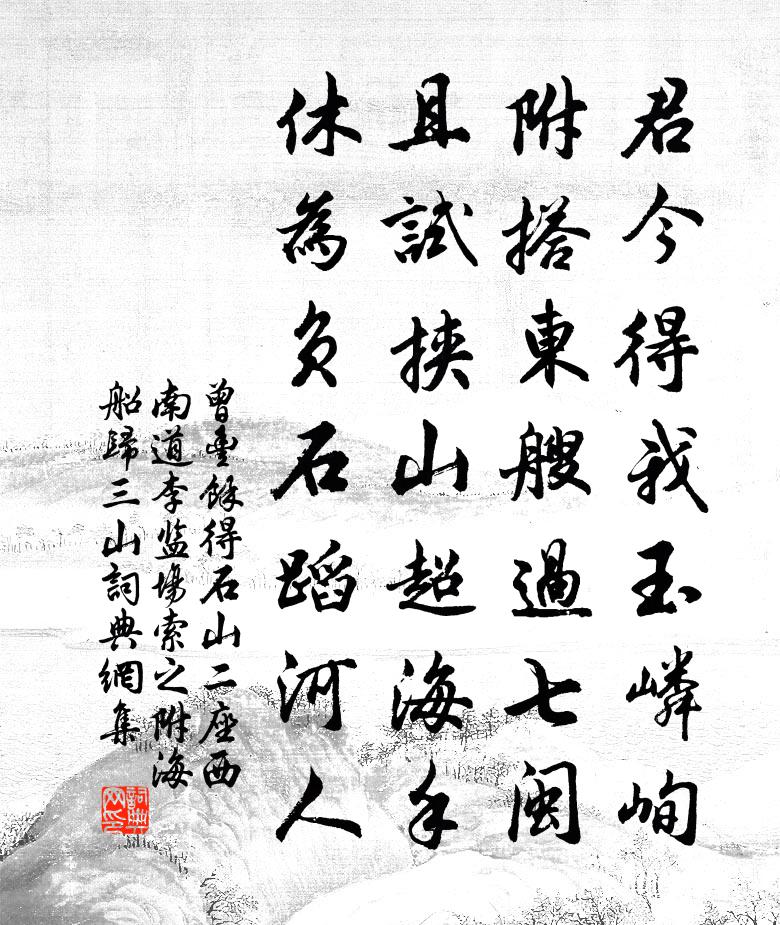 君今得我玉嶙峋
附搭東艘過七閩
且試挾山超海手
休為負石蹈河人
曾豊餘得石山二座西
南道李监場索之附海
船歸三山詞典網集
詞典网印